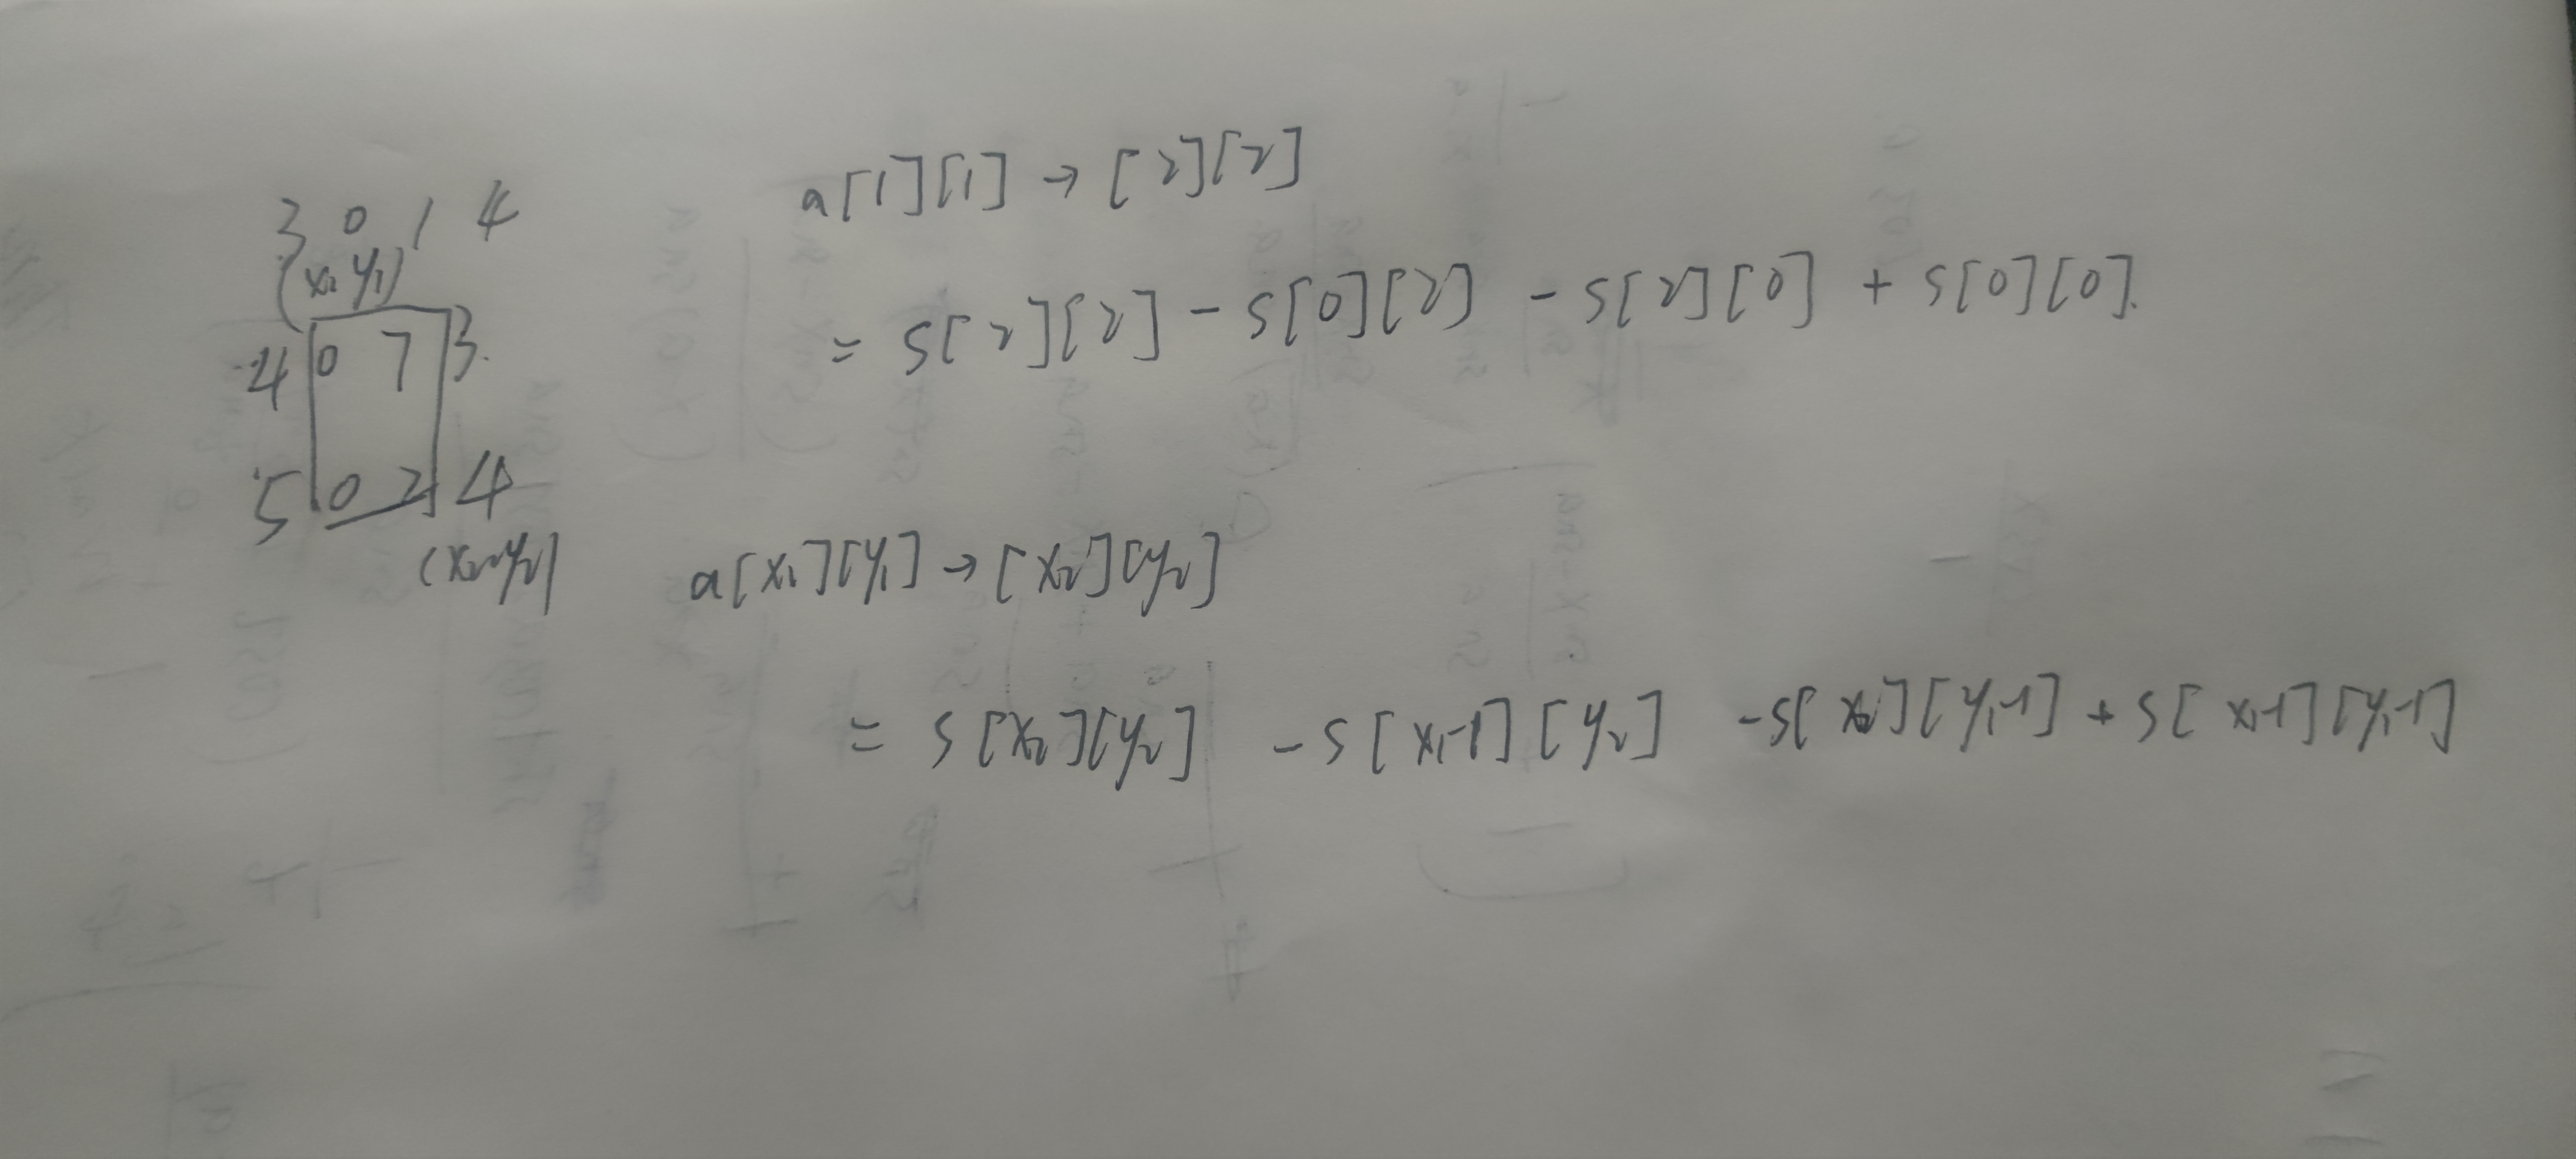 3 0 1 4
(x₁ y₁)
4 0 7 3
5 0 2 4
(x₂ y₂)
a[1][1] → [2][2]
= S[2][2] - S[0][2] - S[2][0] + S[0][0]
a[x₁][y₁] → [x₂][y₂]
= S[x₂][y₂] - S[x₁-1][y₂] - S[x₂][y₁-1] + S[x₁-1][y₁-1]